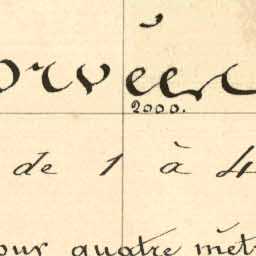 orvées
2000.
de 1 à 4
our quatre mèt